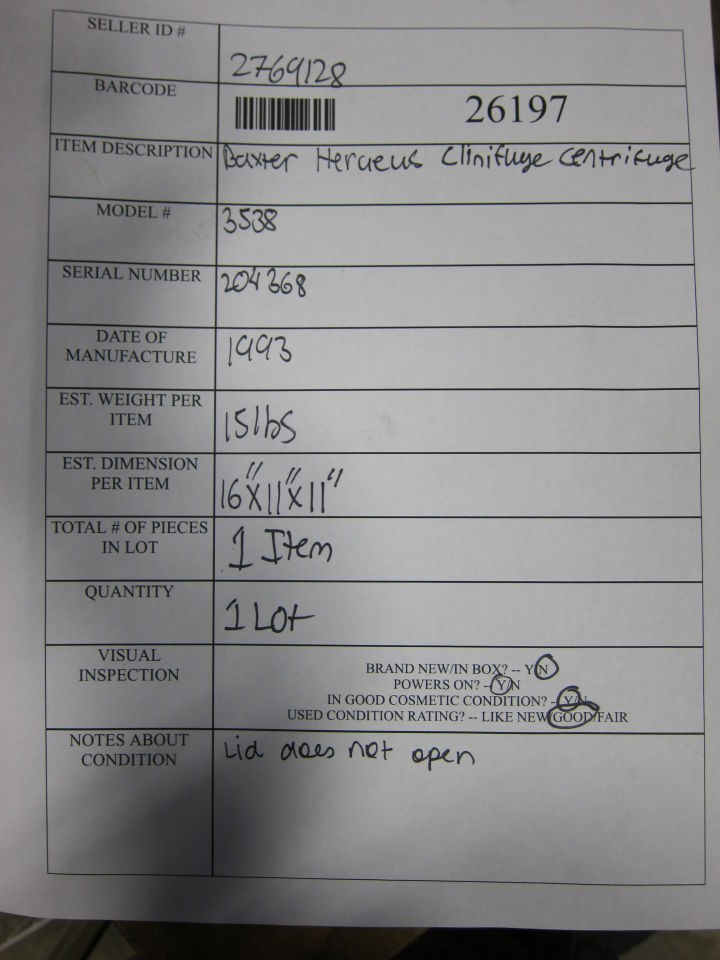 SELLER ID #
2769128
BARCODE
26197
ITEM DESCRIPTION
Baxter Heraeus Clinifuge Centrifuge
MODEL #
3538
SERIAL NUMBER
204368
DATE OF
MANUFACTURE
1993
EST. WEIGHT PER
ITEM
15lbs
EST. DIMENSION
PER ITEM
16"X11"X11"
TOTAL # OF PIECES
IN LOT
1 Item
QUANTITY
1 Lot
VISUAL
INSPECTION
BRAND NEW/IN BOX? -- Y/N
POWERS ON? -- Y/N
IN GOOD COSMETIC CONDITION? -- Y/N
USED CONDITION RATING? -- LIKE NEW/GOOD/FAIR
NOTES ABOUT
CONDITION
Lid does not open